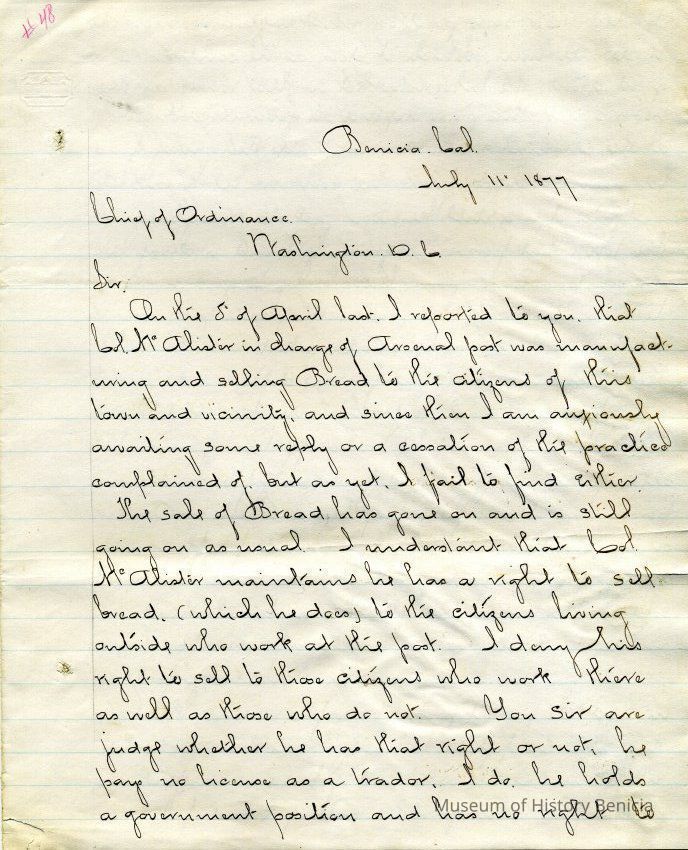 # 48
Benicia. Cal.
July 11th 1877
Chief of Ordinance.
Washington. D. C.
Sir.
On the 5th of April last. I reported to you. that
Col. Mc Alister in charge of Arsenal post was manufact-
uring and selling Bread to the citizens of this
town and vicinity. and since then I am anxiously
awaiting some reply or a cessation of the practice
complained of. but as yet. I fail to find either
The sale of Bread has gone on and is still
going on as usual. I understant that Col.
Mc Alister maintains he has a right to sell
bread. (which he does) to the citizens living
outside who work at the post. I deny his
right to sell to those citizens who work there
as well as those who do not. You Sir are
judge whether he has that right or not, he
pays no license as a trador. I do. he holds
a government position and has no right to
Museum of History Benicia